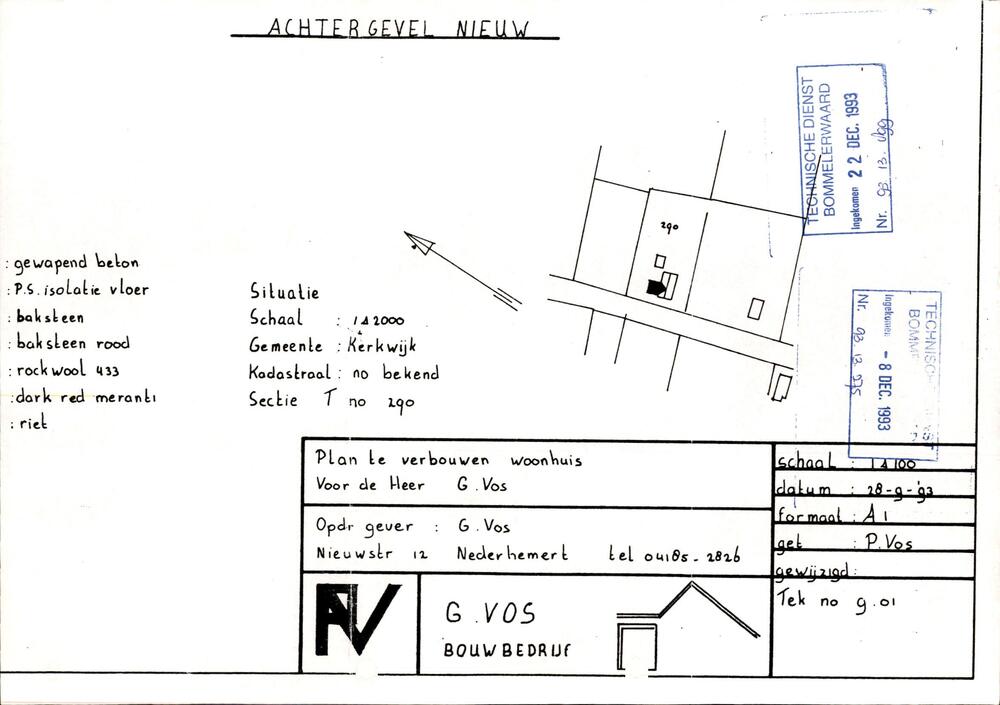 ACHTERGEVEL NIEUW
TECHNISCHE DIENST
BOMMELERWAARD
Ingekomen 22 DEC. 1993
Nr. 93 13.
290
: gewapend beton
: P.S. isolatie vloer
: baksteen
: baksteen rood
: rockwool 433
: dark red meranti
: riet
Situatie
Schaal : 1 à 2000
Gemeente : Kerkwijk
Kadastraal : no bekend
Sectie T no 290
TECHNISCH
BOMM
Ingekomen - 8 DEC. 1993
Nr. 93 13 975
Plan te verbouwen woonhuis
Voor de Heer G. Vos
Opdr gever : G. Vos
Nieuwstr 12 Nederhemert tel 04185-2826
schaal : 1 à 100
datum : 28-9-'93
formaat : A1
get : P. Vos
gewijzigd :
Tek no 9.01
G. VOS
BOUWBEDRIJF